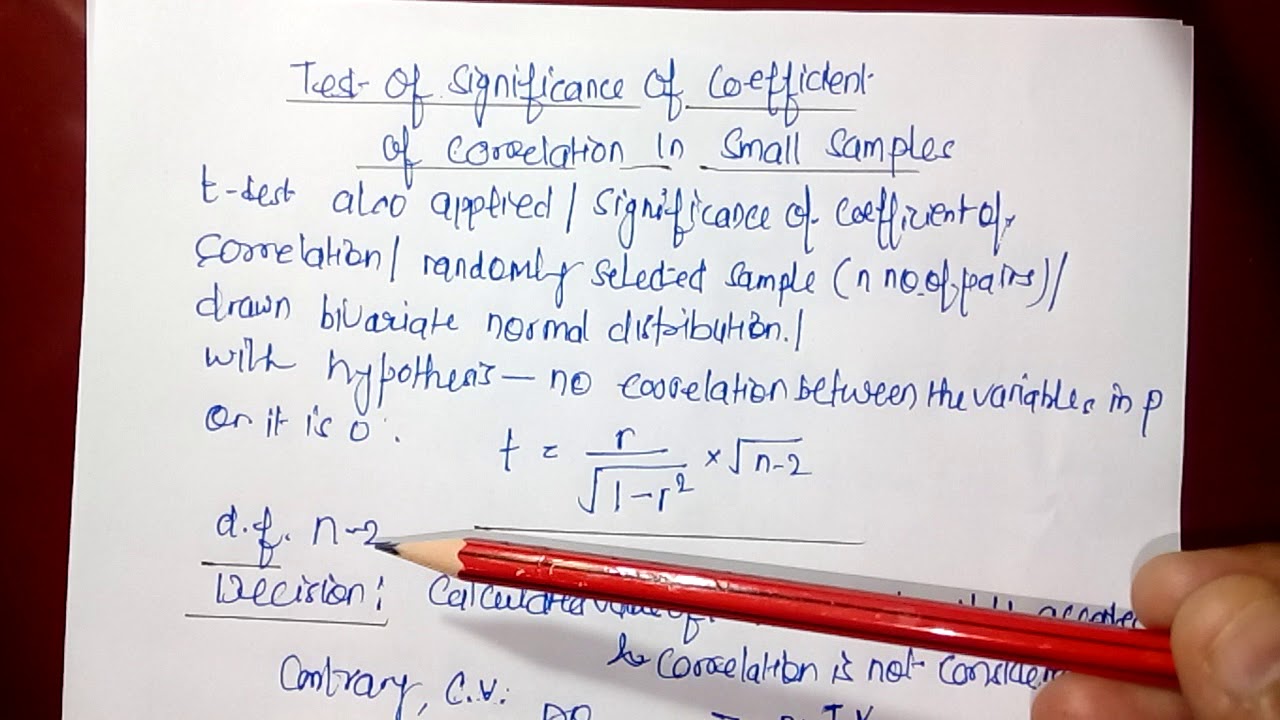 Test Of Significance Of Coefficient
Of Correlation In Small Samples
t-test also applied / Significance of Coefficient of
Correlation / randomly selected sample (n no. of pairs) /
drawn bivariate normal distribution. /
with hypothesis — no correlation between the variables in p
or it is 0.
t = r / √(1-r²) × √(n-2)
d.f. n-2
Decision: Calculated value of
Correlation is not
Contrary, C.V.
T.V